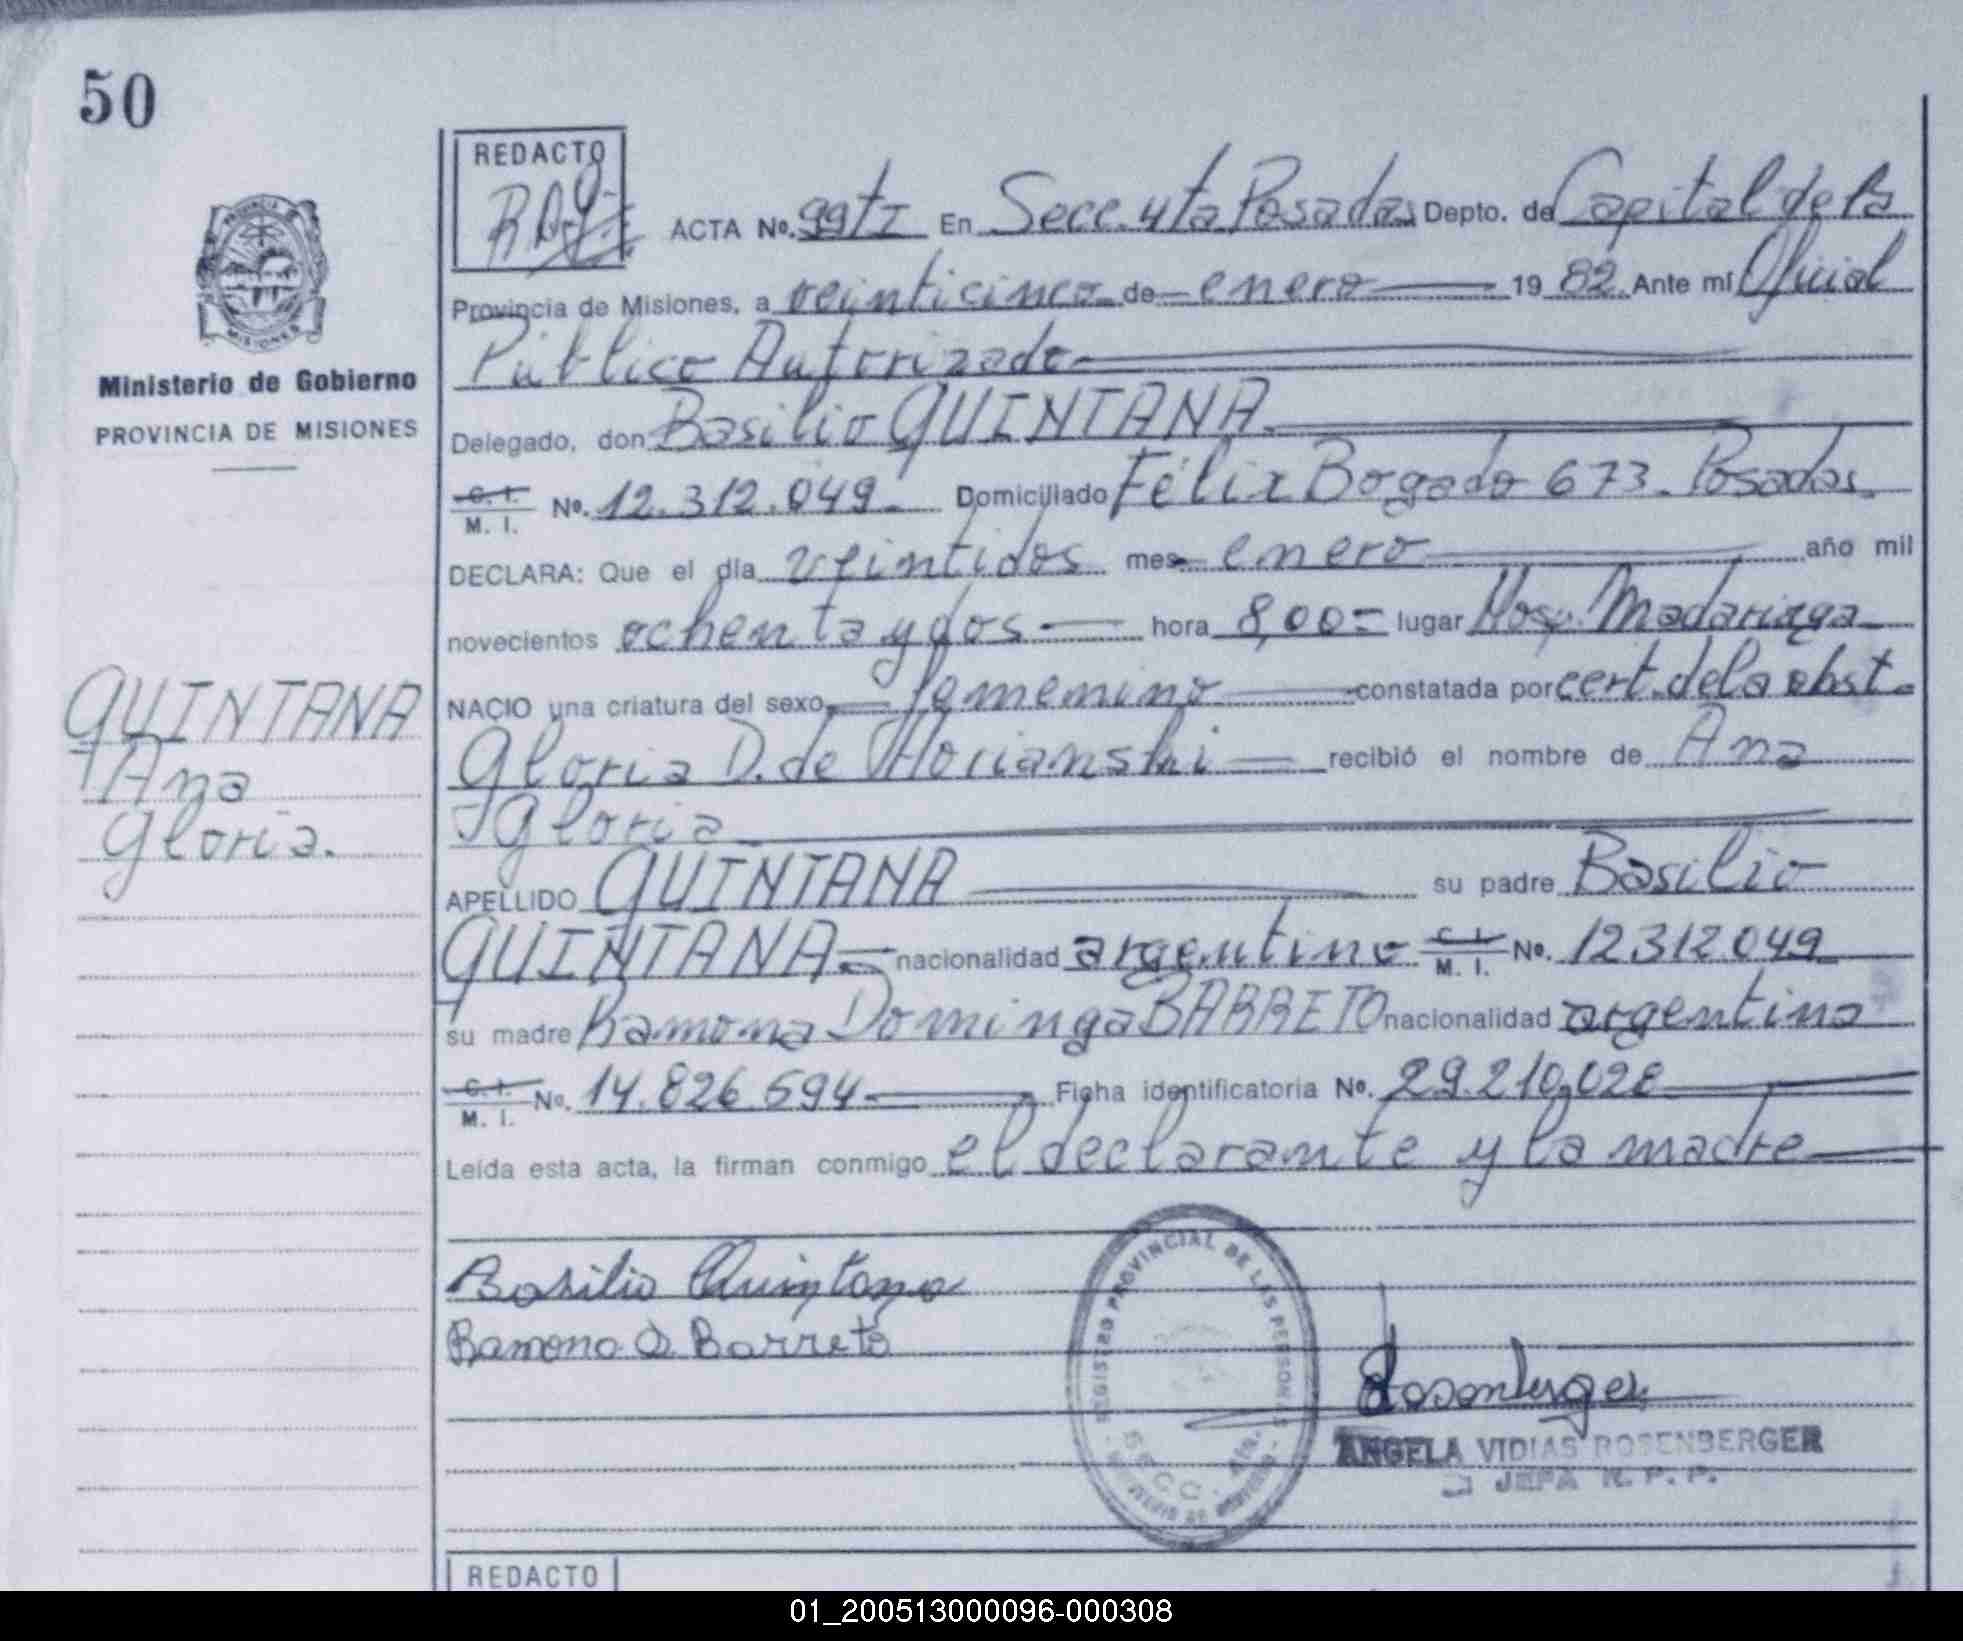 50
REDACTO
ACTA Nº. 99tI En Secc. 4ta Posadas Depto. de Capital de la
Provincia de Misiones, a veinticinco de enero 19 82. Ante mí Oficial
Público Autorizado
Ministerio de Gobierno
PROVINCIA DE MISIONES
Delegado, don Basilio QUINTANA
C. I. M. I. Nº. 12.312.049. Domiciliado Félix Bogado 673. Posadas.
DECLARA: Que el día veintidos mes enero año mil
novecientos ochenta y dos hora 8,00 lugar Hosp. Madariaga
NACIO una criatura del sexo femenino constatada por cert. de la obst.
Gloria D. de recibió el nombre de Ana
Gloria
QUINTANA
Ana
Gloria.
APELLIDO QUINTANA su padre Basilio
QUINTANA nacionalidad argentino C. I. M. I. Nº. 12312.049
su madre Ramona Dominga BARRETO nacionalidad argentina
C. I. M. I. Nº. 14.826.594 Ficha identificatoria Nº. 29.210.028
Leída esta acta, la firman conmigo el declarante y la madre
Basilio Quintana
Ramona D Barreto
REGISTRO PROVINCIAL DE LAS PERSONAS
SECC. 4ta.
Rosenberger
ANGELA VIDIAS ROSENBERGER
JEFA R. P. P.
REDACTO
01_200513000096-000308